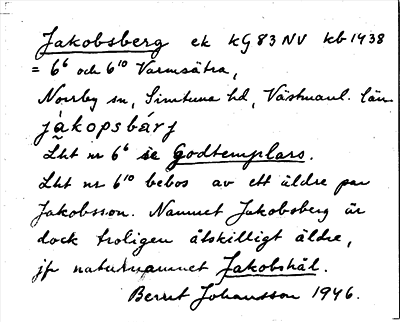 Jakobsberg ek kG 83 NV kb 1438
= 6⁶ och 6¹⁰ Varmsätra,
Norrby sn, Simtuna hd, Västmanl. län
jàkopsbárj
Lht nr 6⁶ se Godtemplars.
Lht nr 6¹⁰ bebos av ett äldre par
Jakobsson. Namnet Jakobsberg är
dock troligen åtskilligt äldre,
jfr naturnamnet Jakobshäl.
Berrit Johansson 1946.